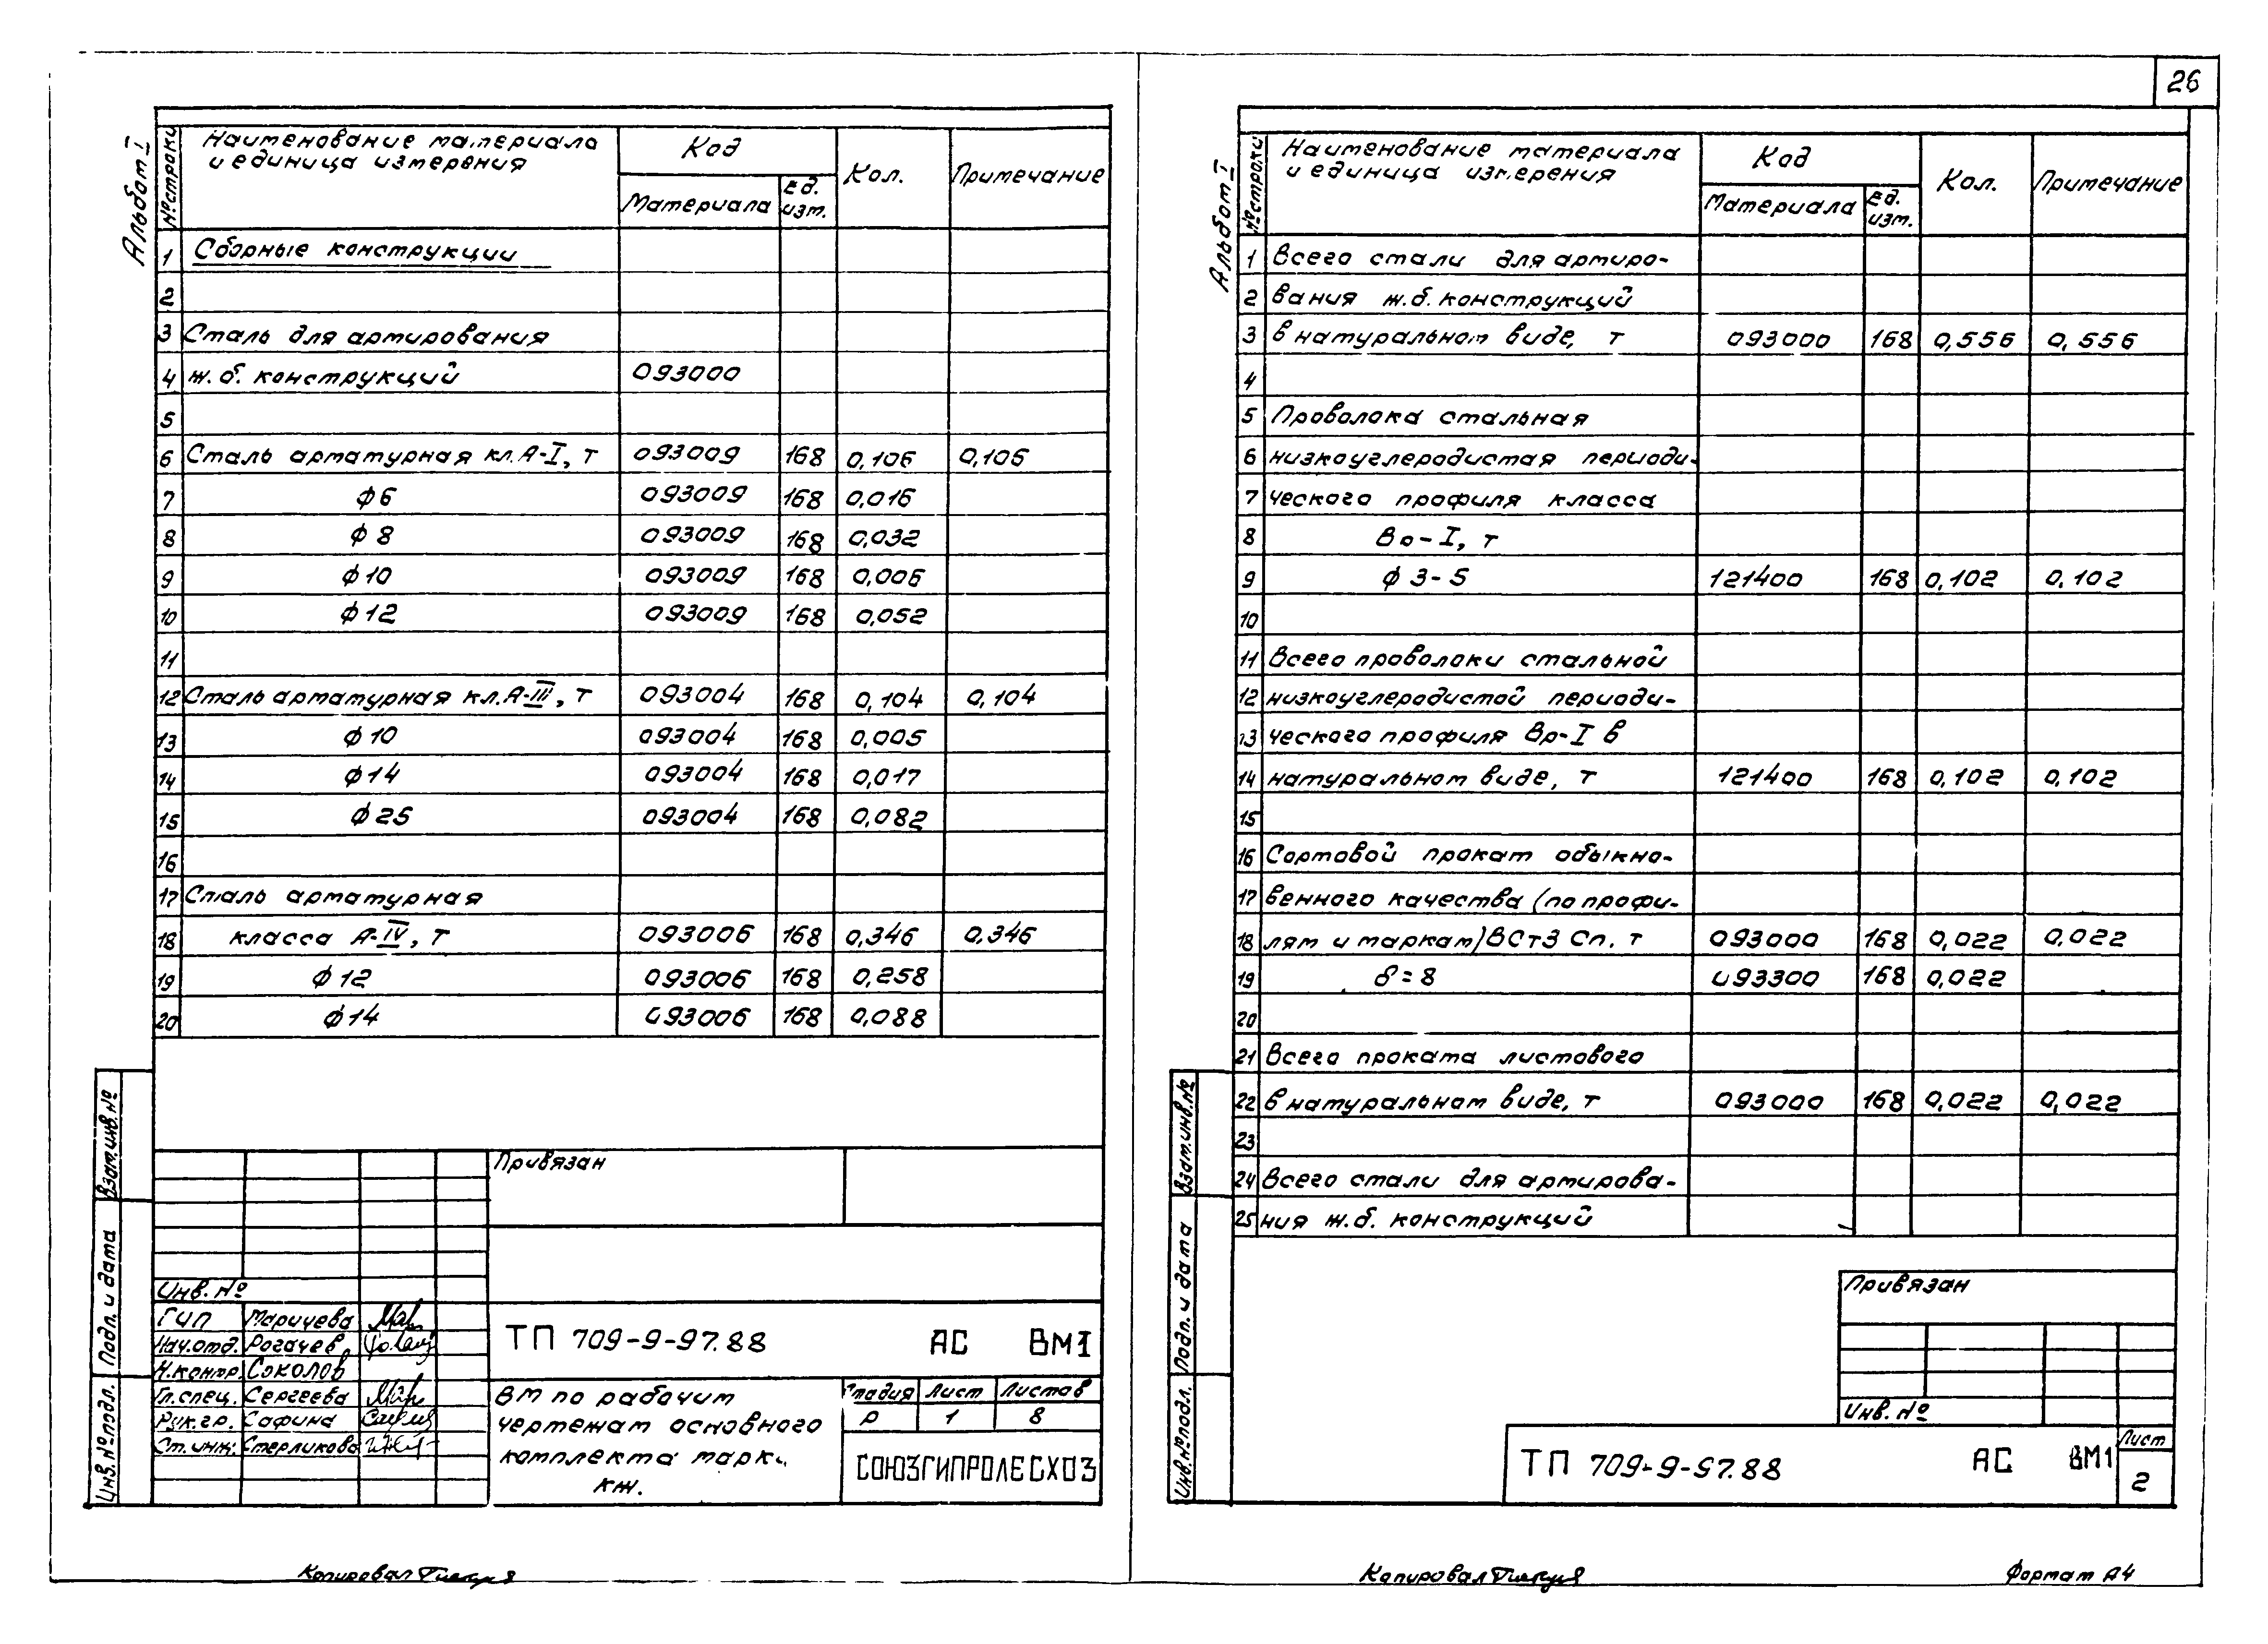 26
Альбом I
№ строки Наименование материала и единица измерения Код Кол. Примечание
Материала Ед. изм.
1 Сборные конструкции
2
3 Сталь для армирования
4 ж.б. конструкций 093000
5
6 Сталь арматурная кл. А-I, т 093009 168 0,106 0,106
7 ф6 093009 168 0,016
8 ф8 093009 168 0,032
9 ф10 093009 168 0,006
10 ф12 093009 168 0,052
11
12 Сталь арматурная кл. А-III, т 093004 168 0,104 0,104
13 ф10 093004 168 0,005
14 ф14 093004 168 0,017
15 ф25 093004 168 0,082
16
17 Сталь арматурная
18 класса А-IV, т 093006 168 0,346 0,346
19 ф12 093006 168 0,258
20 ф14 093006 168 0,088
Взам.инв.№
Подп. и дата
Инв.№подл.
Привязан
Инв. №
ГИП Маричева
Нач.отд. Рогачев
Н.контр. Соколов
Гл.спец. Сергеева
Рук.гр. Сафина
Ст.инж. Стерликова
ТП 709-9-97.88 АС ВМ1
ВМ по рабочим
чертежам основного
комплекта марки
КЖ.
Стадия Лист Листов
Р 1 8
СОЮЗГИПРОЛЕСХОЗ
Копировал
Альбом I
№ строки Наименование материала и единица измерения Код Кол. Примечание
Материала Ед. изм.
1 Всего стали для армиро-
2 вания ж.б. конструкций
3 в натуральном виде, т 093000 168 0,556 0,556
4
5 Проволока стальная
6 низкоуглеродистая периоди-
7 ческого профиля класса
8 Вр-I, т
9 ф 3-5 121400 168 0,102 0,102
10
11 Всего проволоки стальной
12 низкоуглеродистой периоди-
13 ческого профиля Вр-I в
14 натуральном виде, т 121400 168 0,102 0,102
15
16 Сортовой прокат обыкно-
17 венного качества (по профи-
18 лям и маркам) ВСт3 Сп. т 093000 168 0,022 0,022
19 δ=8 093300 168 0,022
20
21 Всего проката листового
22 в натуральном виде, т 093000 168 0,022 0,022
23
24 Всего стали для армирова-
25 ния ж.б. конструкций
Взам.инв.№
Подп. и дата
Инв.№подл.
Привязан
Инв. №
ТП 709-9-97.88 АС ВМ1
Лист
2
Копировал
Формат А4